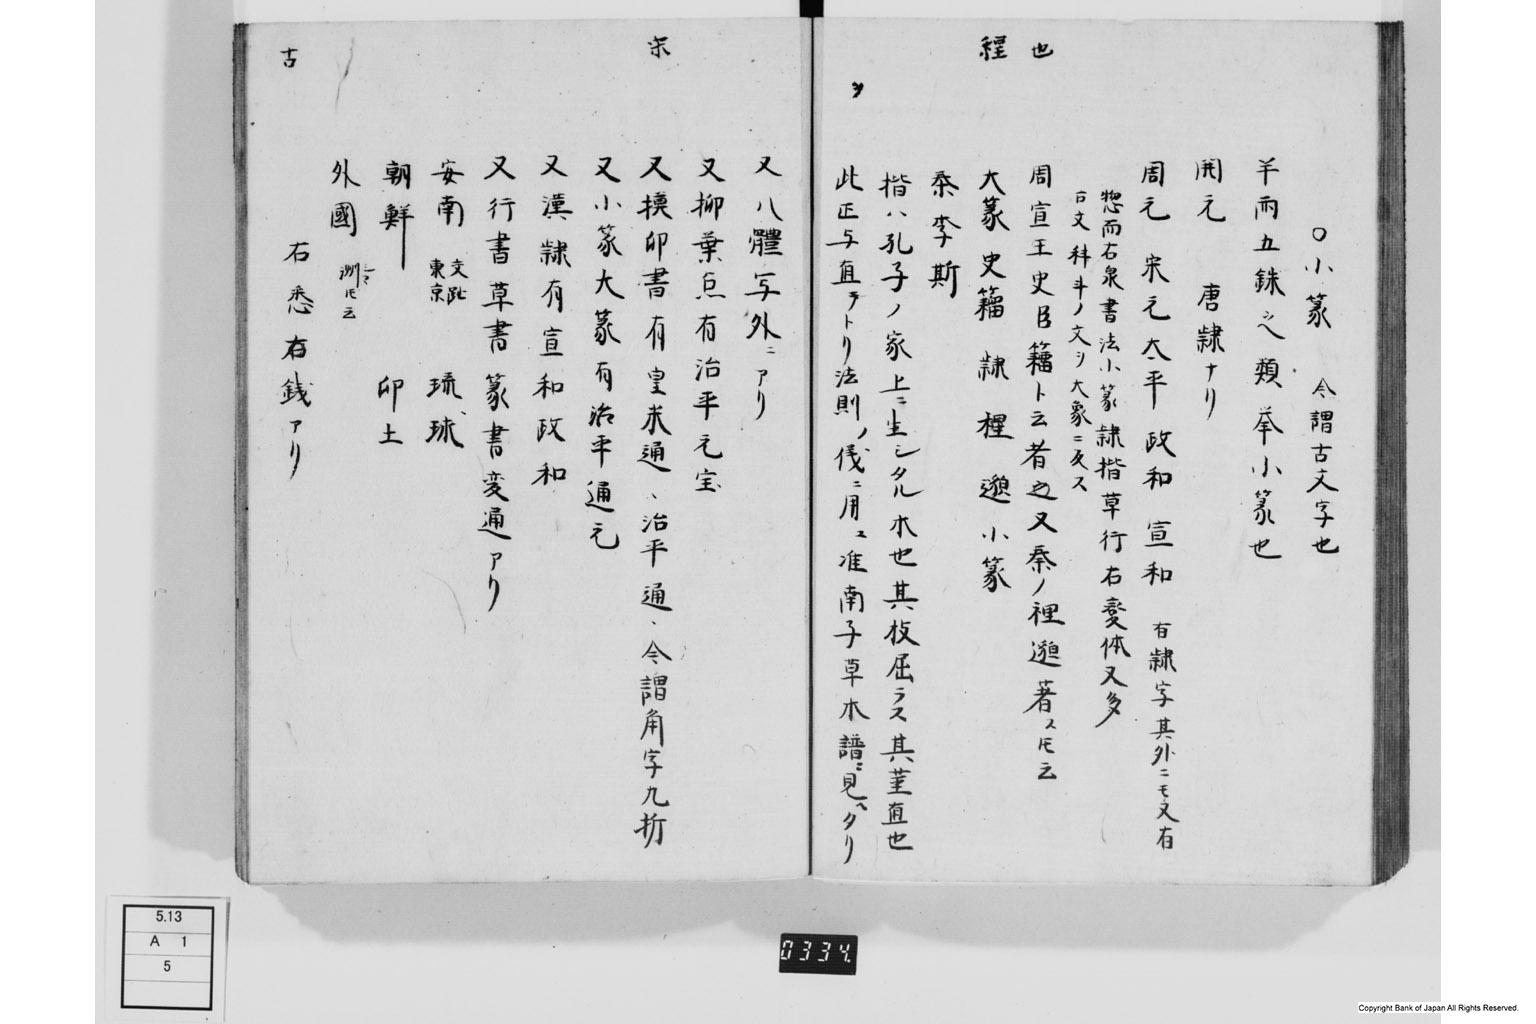 也
經
○小篆　今謂古文字也
半両五銖之類挙小篆也
開元　唐隷ナリ
周元　宋元太平　政和　宣和　有隷字其外ニモ文有
惣而右泉書法小篆隷楷草行右変体又多
古文科斗ノ文ヲ大象ニ反ス
周宣王史臣籀ト云者也又秦ノ裡邈著スト云
大篆史籀　隷　程邈　小篆
秦李斯
楷ハ孔子ノ家上ニ生シタル木也其枝屈ラス其茎直也
此正与直ヲトリ法則ノ儀ニ用ユ准南子草木譜ニ見ヘタリ
宋
古
又八體写外ニアリ
又柳葉点有治平元宝
又摸印書有皇宋通、治平通、今謂角字九折
又小篆大篆有治平通元
又漢隷有宣和政和
又行書草書篆書変通アリ
安南　文趾　東京　琉球
朝鮮　卬土
外國
右悉右銭アリ
5.13
A 1
5
0334
Copyright Bank of Japan All Rights Reserved.